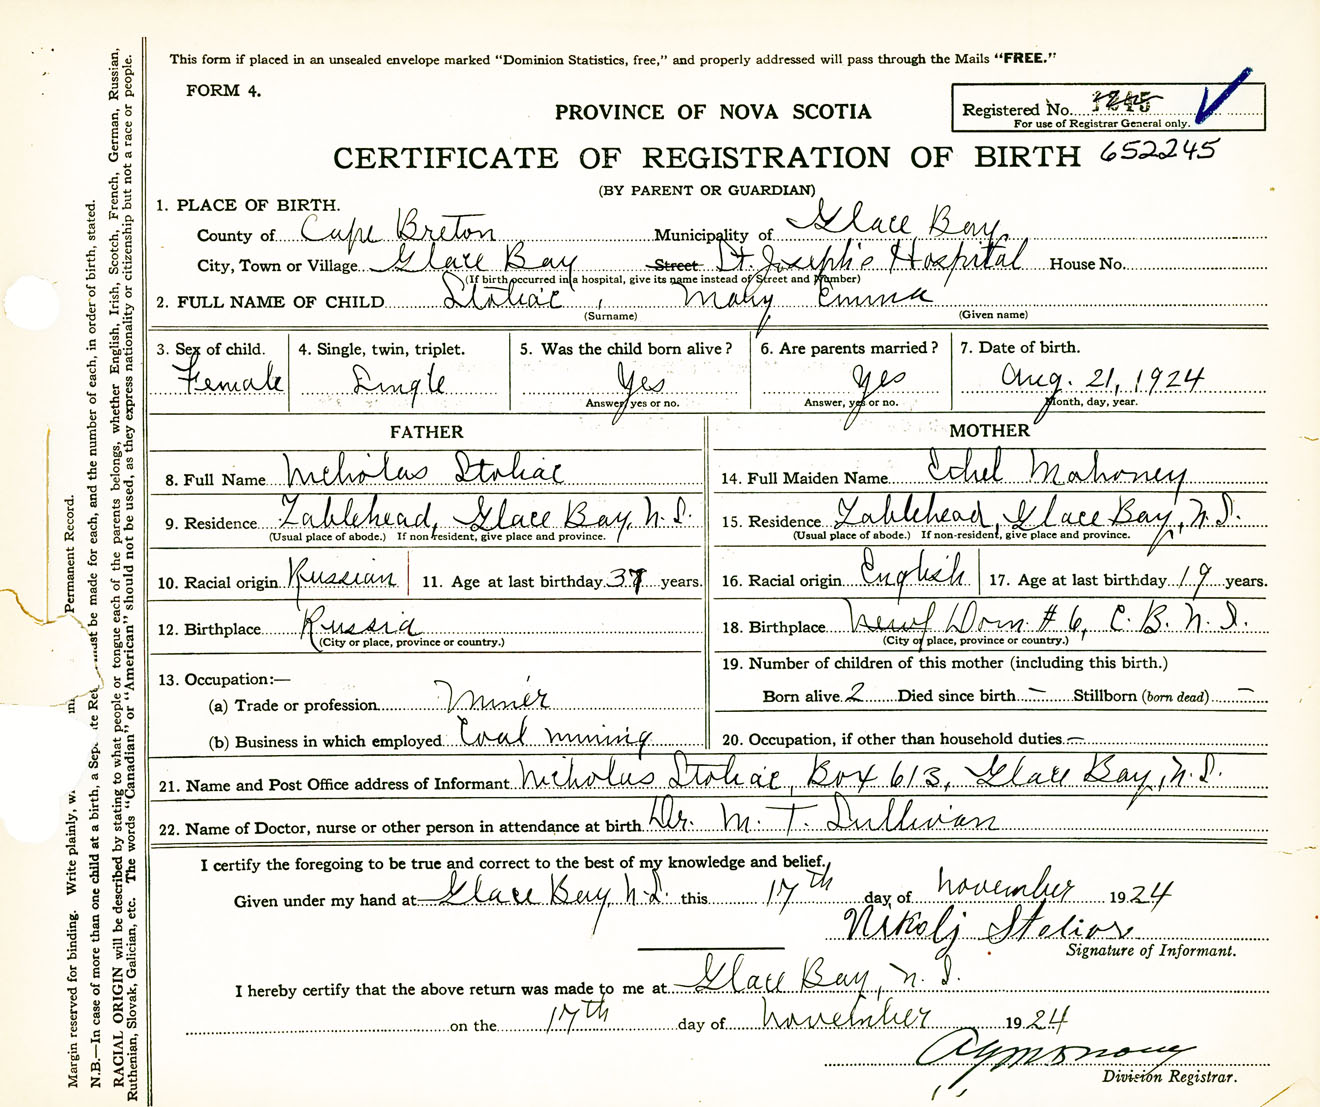 This form if placed in an unsealed envelope marked “Dominion Statistics, free,” and properly addressed will pass through the Mails “FREE.”
FORM 4.
Registered No.
For use of Registrar General only.
PROVINCE OF NOVA SCOTIA
CERTIFICATE OF REGISTRATION OF BIRTH 652245
(BY PARENT OR GUARDIAN)
1. PLACE OF BIRTH.
County of Cape Breton Municipality of Glace Bay
City, Town or Village Glace Bay Street St. Joseph's Hospital House No.
(If birth occurred in a hospital, give its name instead of Street and Number)
2. FULL NAME OF CHILD Stoliac, Mary Emma
(Surname) (Given name)
3. Sex of child. 4. Single, twin, triplet. 5. Was the child born alive? 6. Are parents married? 7. Date of birth.
Female Single Yes Yes Aug. 21, 1924
Answer, yes or no. Answer, yes or no. Month, day, year.
FATHER MOTHER
8. Full Name Nicholas Stoliac 14. Full Maiden Name Ethel Mahoney
9. Residence Tablehead, Glace Bay, N.S. 15. Residence Tablehead, Glace Bay, N.S.
(Usual place of abode.) If non-resident, give place and province. (Usual place of abode.) If non-resident, give place and province.
10. Racial origin Russian 11. Age at last birthday 37 years. 16. Racial origin English 17. Age at last birthday 19 years.
12. Birthplace Russia 18. Birthplace Dom. #6, C.B. N.S.
(City or place, province or country.) (City or place, province or country.)
13. Occupation:— 19. Number of children of this mother (including this birth.)
(a) Trade or profession Miner Born alive 2 Died since birth — Stillborn (born dead) —
(b) Business in which employed Coal mining 20. Occupation, if other than household duties —
21. Name and Post Office address of Informant Nicholas Stoliac, Box 613, Glace Bay, N.S.
22. Name of Doctor, nurse or other person in attendance at birth Dr. M. T. Sullivan
I certify the foregoing to be true and correct to the best of my knowledge and belief.
Given under my hand at Glace Bay, N.S. this 17th day of November 1924
Nikolj Stoliar
Signature of Informant.
I hereby certify that the above return was made to me at Glace Bay, N.S.
on the 17th day of November 1924
Division Registrar.
Margin reserved for binding. Write plainly, Permanent Record.
N.B.—In case of more than one child at a birth, a Separate must be made for each, and the number of each, in order of birth, stated.
RACIAL ORIGIN will be described by stating to what people or tongue each of the parents belongs, whether English, Irish, Scotch, French, German, Russian,
Ruthenian, Slovak, Galician, etc. The words “Canadian” or “American” should not be used, as they express nationality or citizenship but not a race or people.